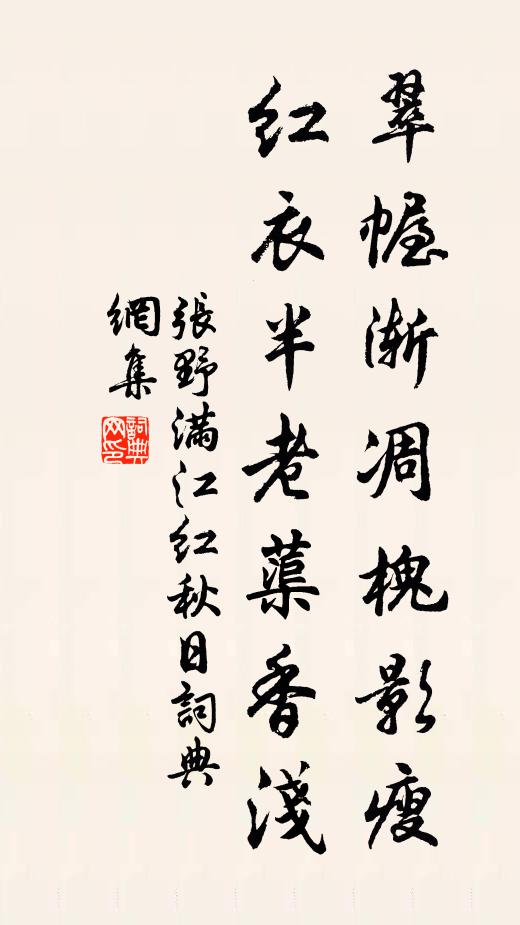 翠幄渐凋槐影瘦
红衣半老蕖香淺
張野满江红秋日詞典
網集
詞典
网印